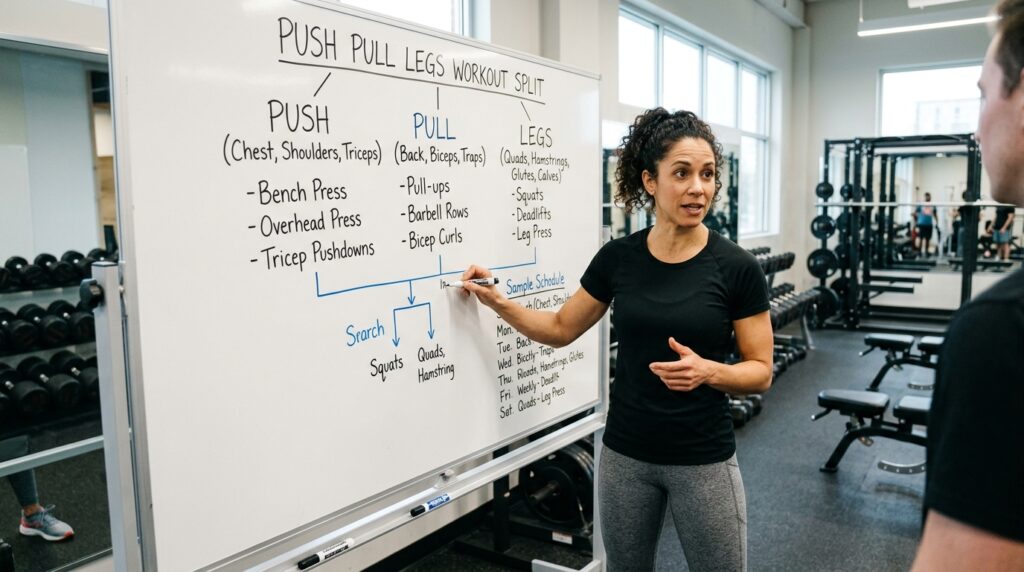 PUSH PULL LEGS WORKOUT SPLIT
PUSH
(Chest, Shoulders, Triceps)
-Bench Press
-Overhead Press
-Tricep Pushdowns
PULL
(Back, Biceps, Traps)
-Pull-ups
-Barbell Rows
-Bicep Curls
LEGS
(Quads, Hamstrings,
Glutes, Calves)
-Squats
-Deadlifts
-Leg Press
Search
Squats
Quads,
Hamstring
Sample Schedule
(Chest,
Mon.
Tue.
Wed. -Traps
Thu. Hamstrings, Glutes
Fri. Weekly-Deadlift
Sat. Quads-Leg Press